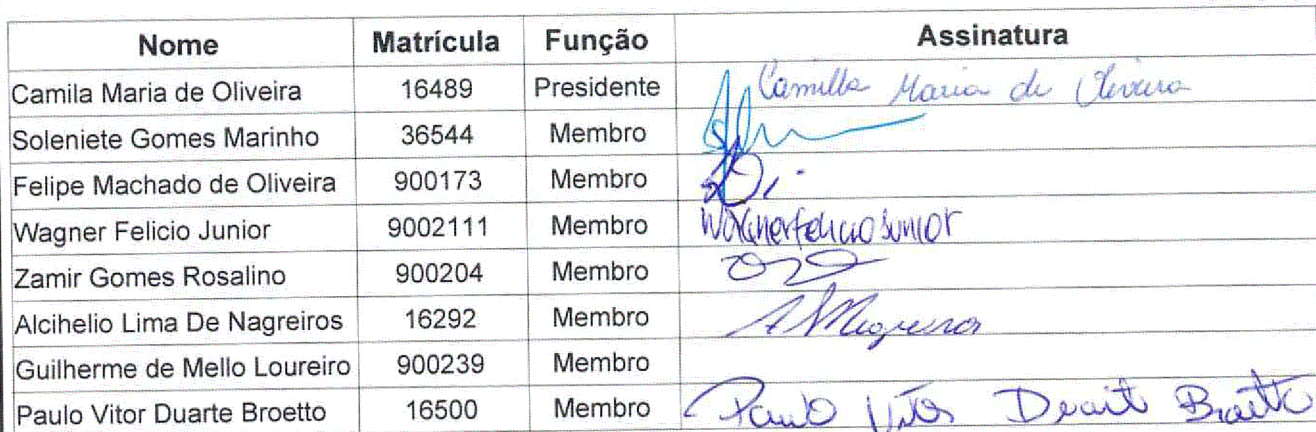 Nome Matrícula Função Assinatura
Camila Maria de Oliveira 16489 Presidente Camilla Maria de Oliveira
Soleniete Gomes Marinho 36544 Membro
Felipe Machado de Oliveira 900173 Membro
Wagner Felicio Junior 9002111 Membro Wagner Felicio Junior
Zamir Gomes Rosalino 900204 Membro
Alcihelio Lima De Nagreiros 16292 Membro
Guilherme de Mello Loureiro 900239 Membro
Paulo Vitor Duarte Broetto 16500 Membro Paulo Vitor Duarte Broetto